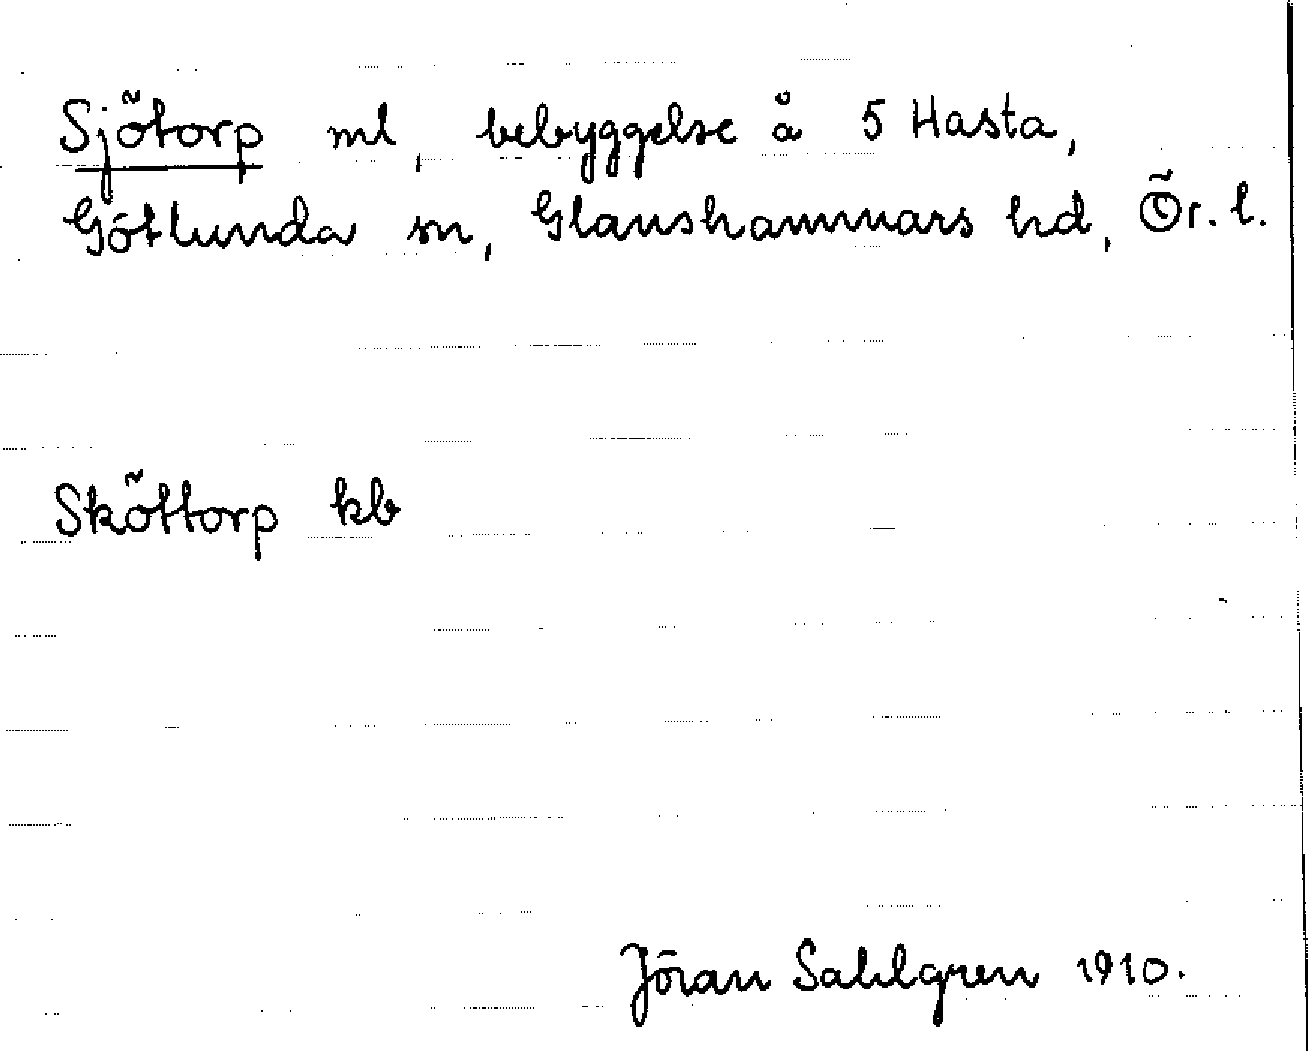 Sjötorp ml, bebyggelse å 5 Hasta,
Götlunda sn, Glanshammars hd, Ör. l.
Sköttorp kb
Jöran Sahlgren 1910.